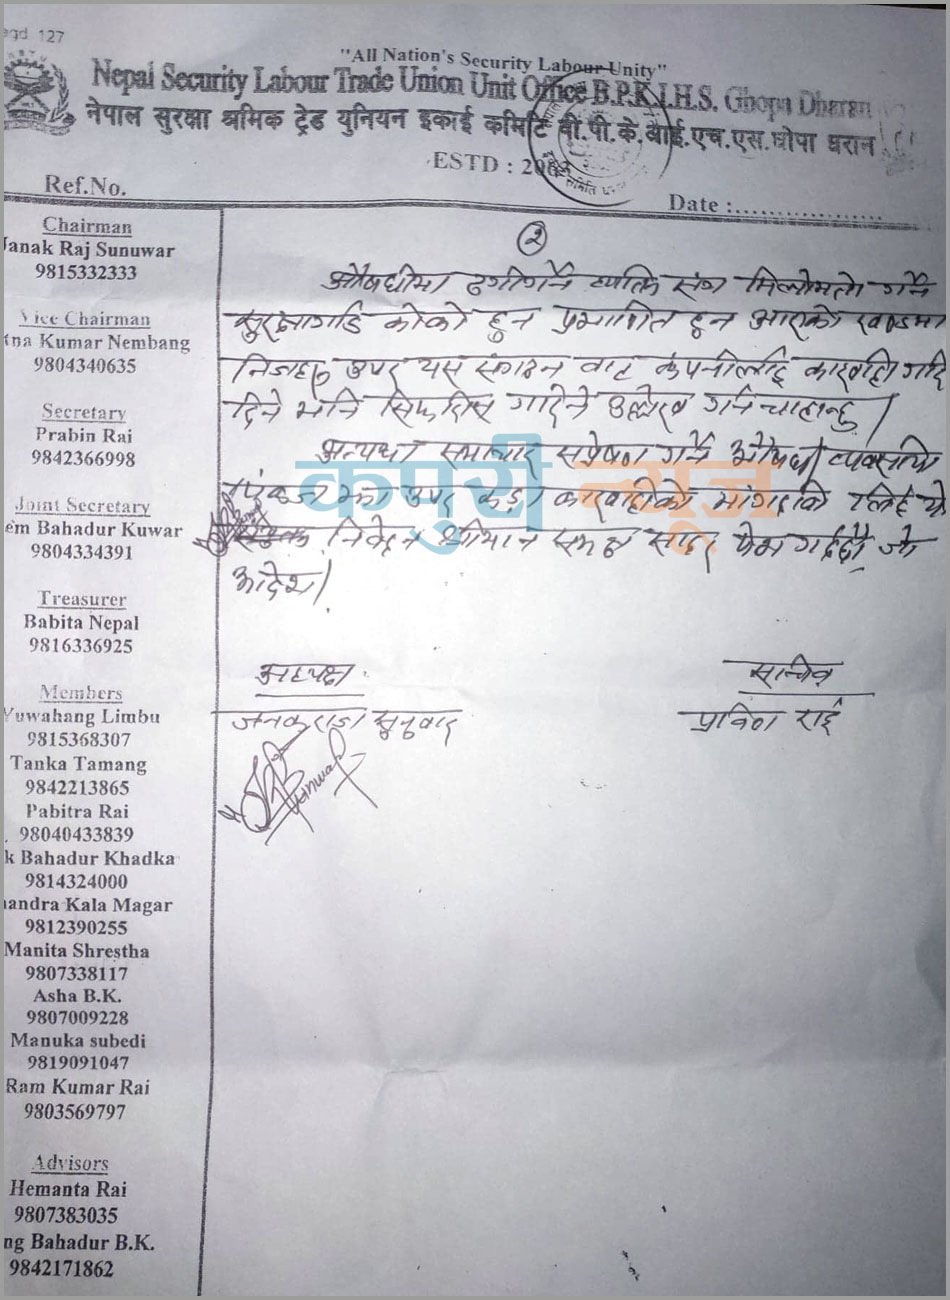 egd 127
"All Nation's Security Labour Unity"
Nepal Security Labour Trade Union Unit Office B.P.K.I.H.S. Ghopa Dharan
नेपाल सुरक्षा श्रमिक ट्रेड युनियन इकाई कमिटि बी.पी.के.आई.एच.एस.घोपा धरान
ESTD : 2063
Ref.No.
Date :..................
Chairman
Janak Raj Sunuwar
9815332333
Vice Chairman
tna Kumar Nembang
9804340635
Secretary
Prabin Rai
9842366998
Joint Secretary
em Bahadur Kuwar
9804334391
Treasurer
Babita Nepal
9816336925
Members
Yuwahang Limbu
9815368307
Tanka Tamang
9842213865
Pabitra Rai
98040433839
k Bahadur Khadka
9814324000
andra Kala Magar
9812390255
Manita Shrestha
9807338117
Asha B.K.
9807009228
Manuka subedi
9819091047
Ram Kumar Rai
9803569797
Advisors
Hemanta Rai
9807383035
ng Bahadur B.K.
9842171862
२
औषधीमा ठगीगर्ने व्यक्ति संग मिलोमतो गर्ने
सुरक्षागार्ड कोको हुन प्रमाणित हुन आएको खण्डमा
निजहरु उपर यस संगठन बाट कंपनीलाई कारवाही गरि
दिने भनि सिफारिस गरिने उल्लेख गर्न चाहान्छु।
अन्यथा समाचार सम्प्रेषण गर्ने औषधी व्यवसायि
पंकज झा उपर कडा कारवाहीको मांगदावि लिई यो
निवेदन श्रीमान समक्ष सादर पेस गर्दछौं जो
आदेश।
कपुरी न्यूज
अध्यक्ष
जनकराज सुनुवार
सचिव
प्रविण राई